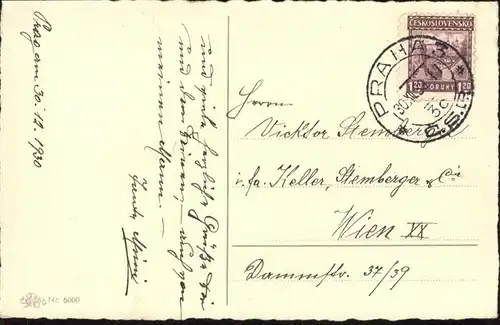 Prag am 30.12.1930
und viele herzliche Grüße Dir
und den Deinen, – auch von
meinem Mann. –
Tante
Nr. 6000
ČESKOSLOVENSKO
1.20 KORUNY 1.20
PRAHA 3
30.XII.
Herrn
Vicktor Stemberger
i. fa. Keller, Stemberger & Co
Wien XX
Dammstr. 37/39